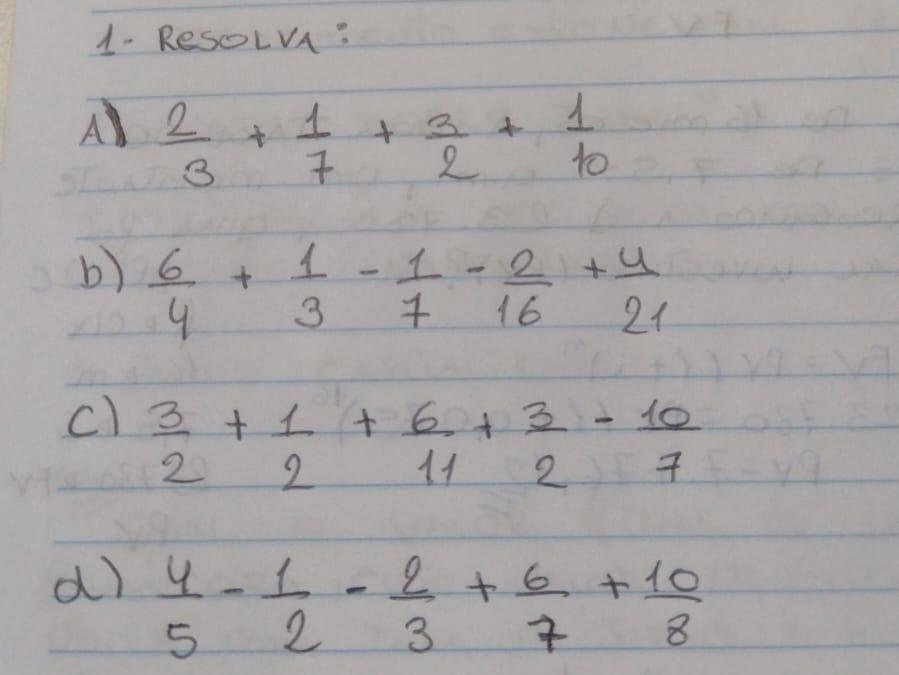 1- Resolva:
A) 2/3 + 1/7 + 3/2 + 1/10
b) 6/4 + 1/3 - 1/7 - 2/16 + 4/21
c) 3/2 + 1/2 + 6/11 + 3/2 - 10/7
d) 4/5 - 1/2 - 2/3 + 6/7 + 10/8